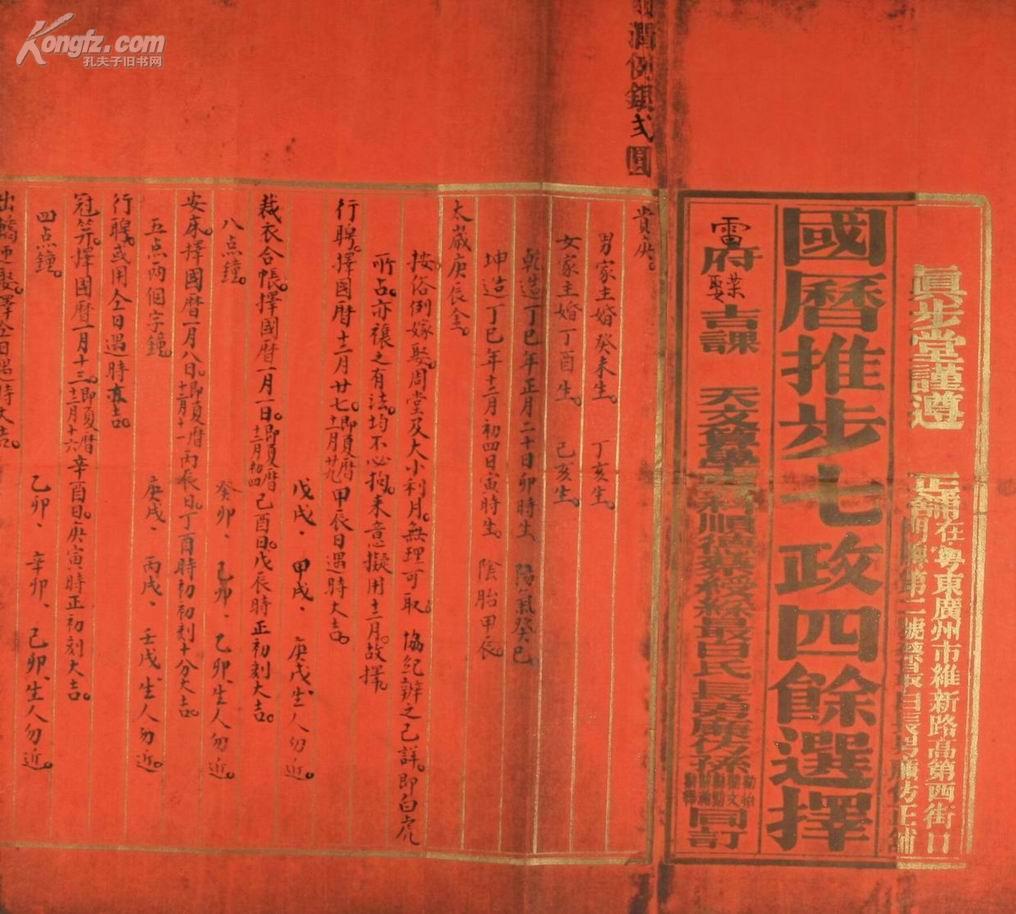 Kongfz.com
孔夫子旧书网
眞步堂謹遵
正舖在粤東廣州市維新路高第西街口
國曆推步七政四餘選擇
雷府
娶
吉課
天文
順德蔡
最白氏長男廉仿孫
同訂
潤例銀弍圓
貴庚。
男家主婚癸未生。 丁亥生。
女家主婚丁酉生。 己亥生。
乾造丁巳年正月二十日卯時生 陽氣癸巳
坤造丁巳年十二月初四日寅時生。 陰胎甲辰
太歲庚辰金。
按俗例嫁娶周堂及大小利月。無理可取。協紀辦之已詳。即白虎
所占亦禳之有法。均不必拘。来意擬用十二月。故擇。
行聘。擇國曆十二月廿七。即夏曆十一月廿九甲辰日遇時大吉。
戊戌、甲戌、庚戌生人勿近。
裁衣合帳。擇國曆一月一日。即夏曆十二月初四己酉日。戊辰時正初刻大吉。
八点鐘。 癸卯、己卯、乙卯、生人勿近。
安床擇國曆一月八日。即夏曆十二月十一丙辰日。丁酉時初初刻十分大吉。
五点两個字鐘。 庚戌、丙戌、壬戌生人勿近
行聘。或用全日遇時亦吉。
冠笄。擇國曆一月十三。十二月十六辛酉日。庚寅時正初刻大吉。
四点鐘。 乙卯、辛卯、己卯、生人勿近。